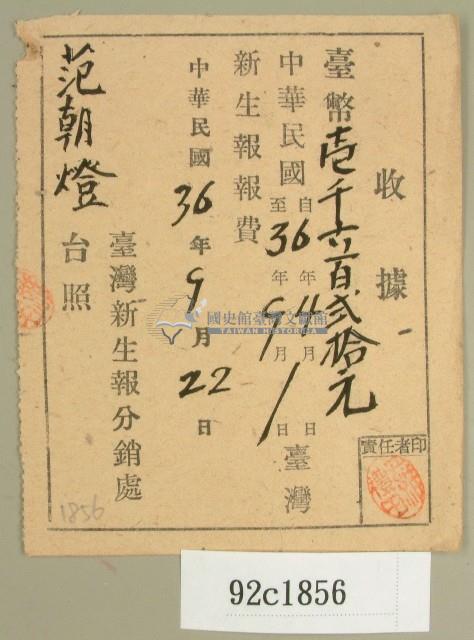 收據
臺幣壹千六百貳拾元
中華民國自年11月日
至36年9月1日臺灣
新生報報費
中華民國36年9月22日
臺灣新生報分銷處
范朝燈台照
責任者印
國史館臺灣文獻館
TAIWAN HISTORICA
1856
92c1856